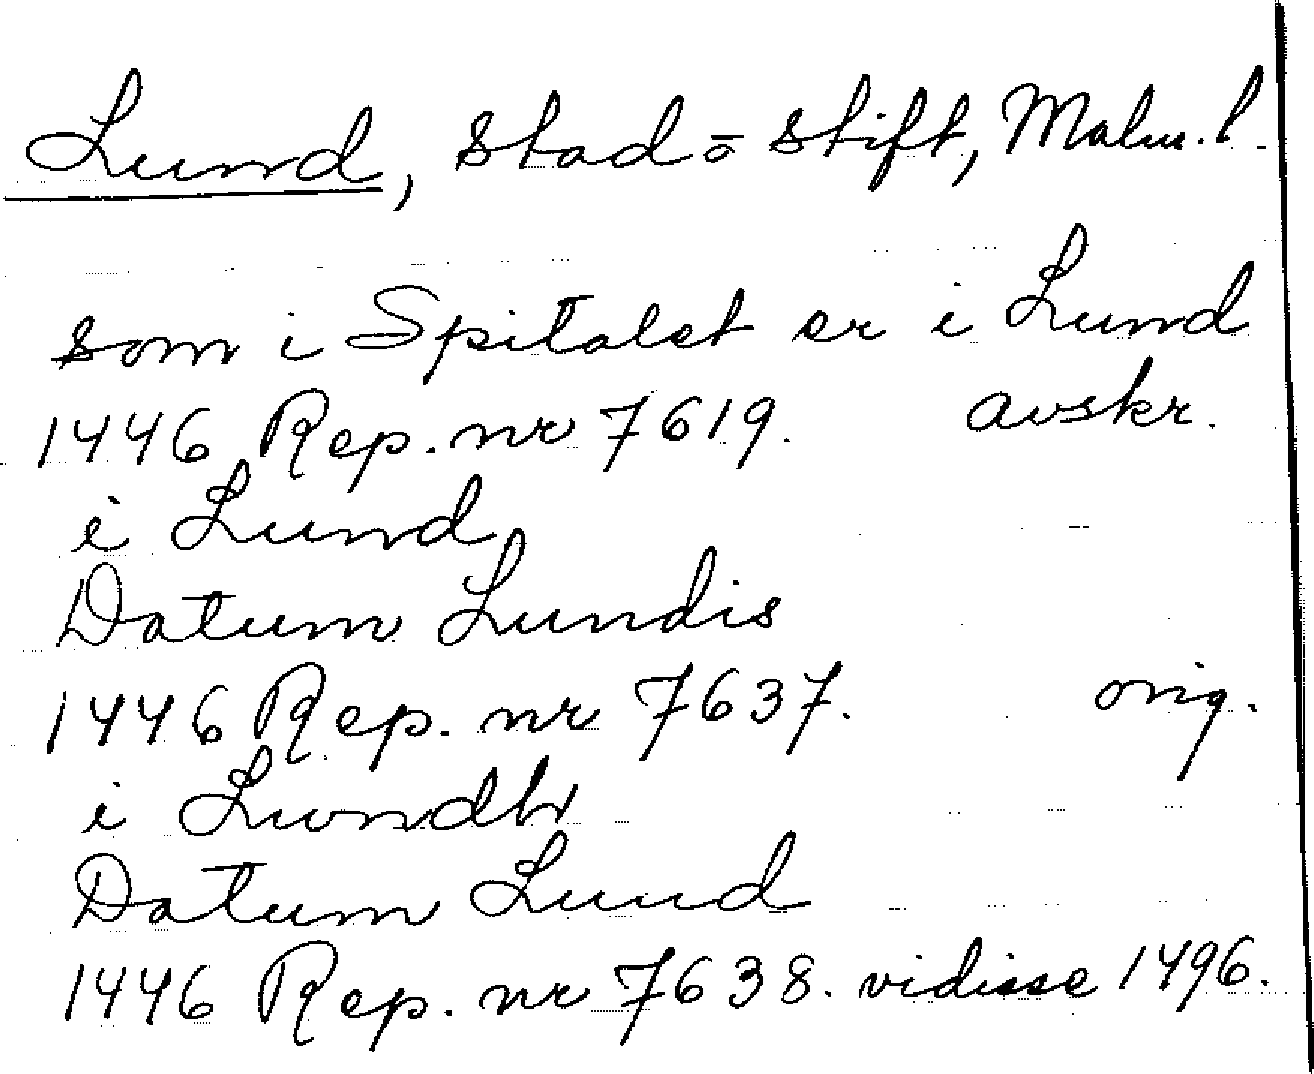 Lund, Stad o Stift, Malm. l.
som i Spitalet er i Lund
1446 Rep. nr 7619. avskr.
i Lund
Datum Lundis
1446 Rep. nr 7637. orig.
i Lundh
Datum Lund
1446 Rep. nr 7638. vidisse 1496.